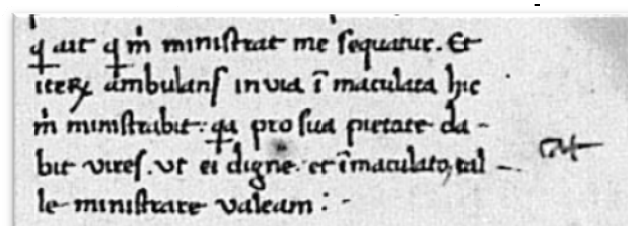 q̄ ait q̄ m̄ ministrat me sequatur. Et
iterꝝ ambulans in uia ī maculata hic
m̄ ministrabit. q̄a pro sua pietate da-
bit uires. ut ei digne et īmaculato, cal-
le ministrare ualeam :-